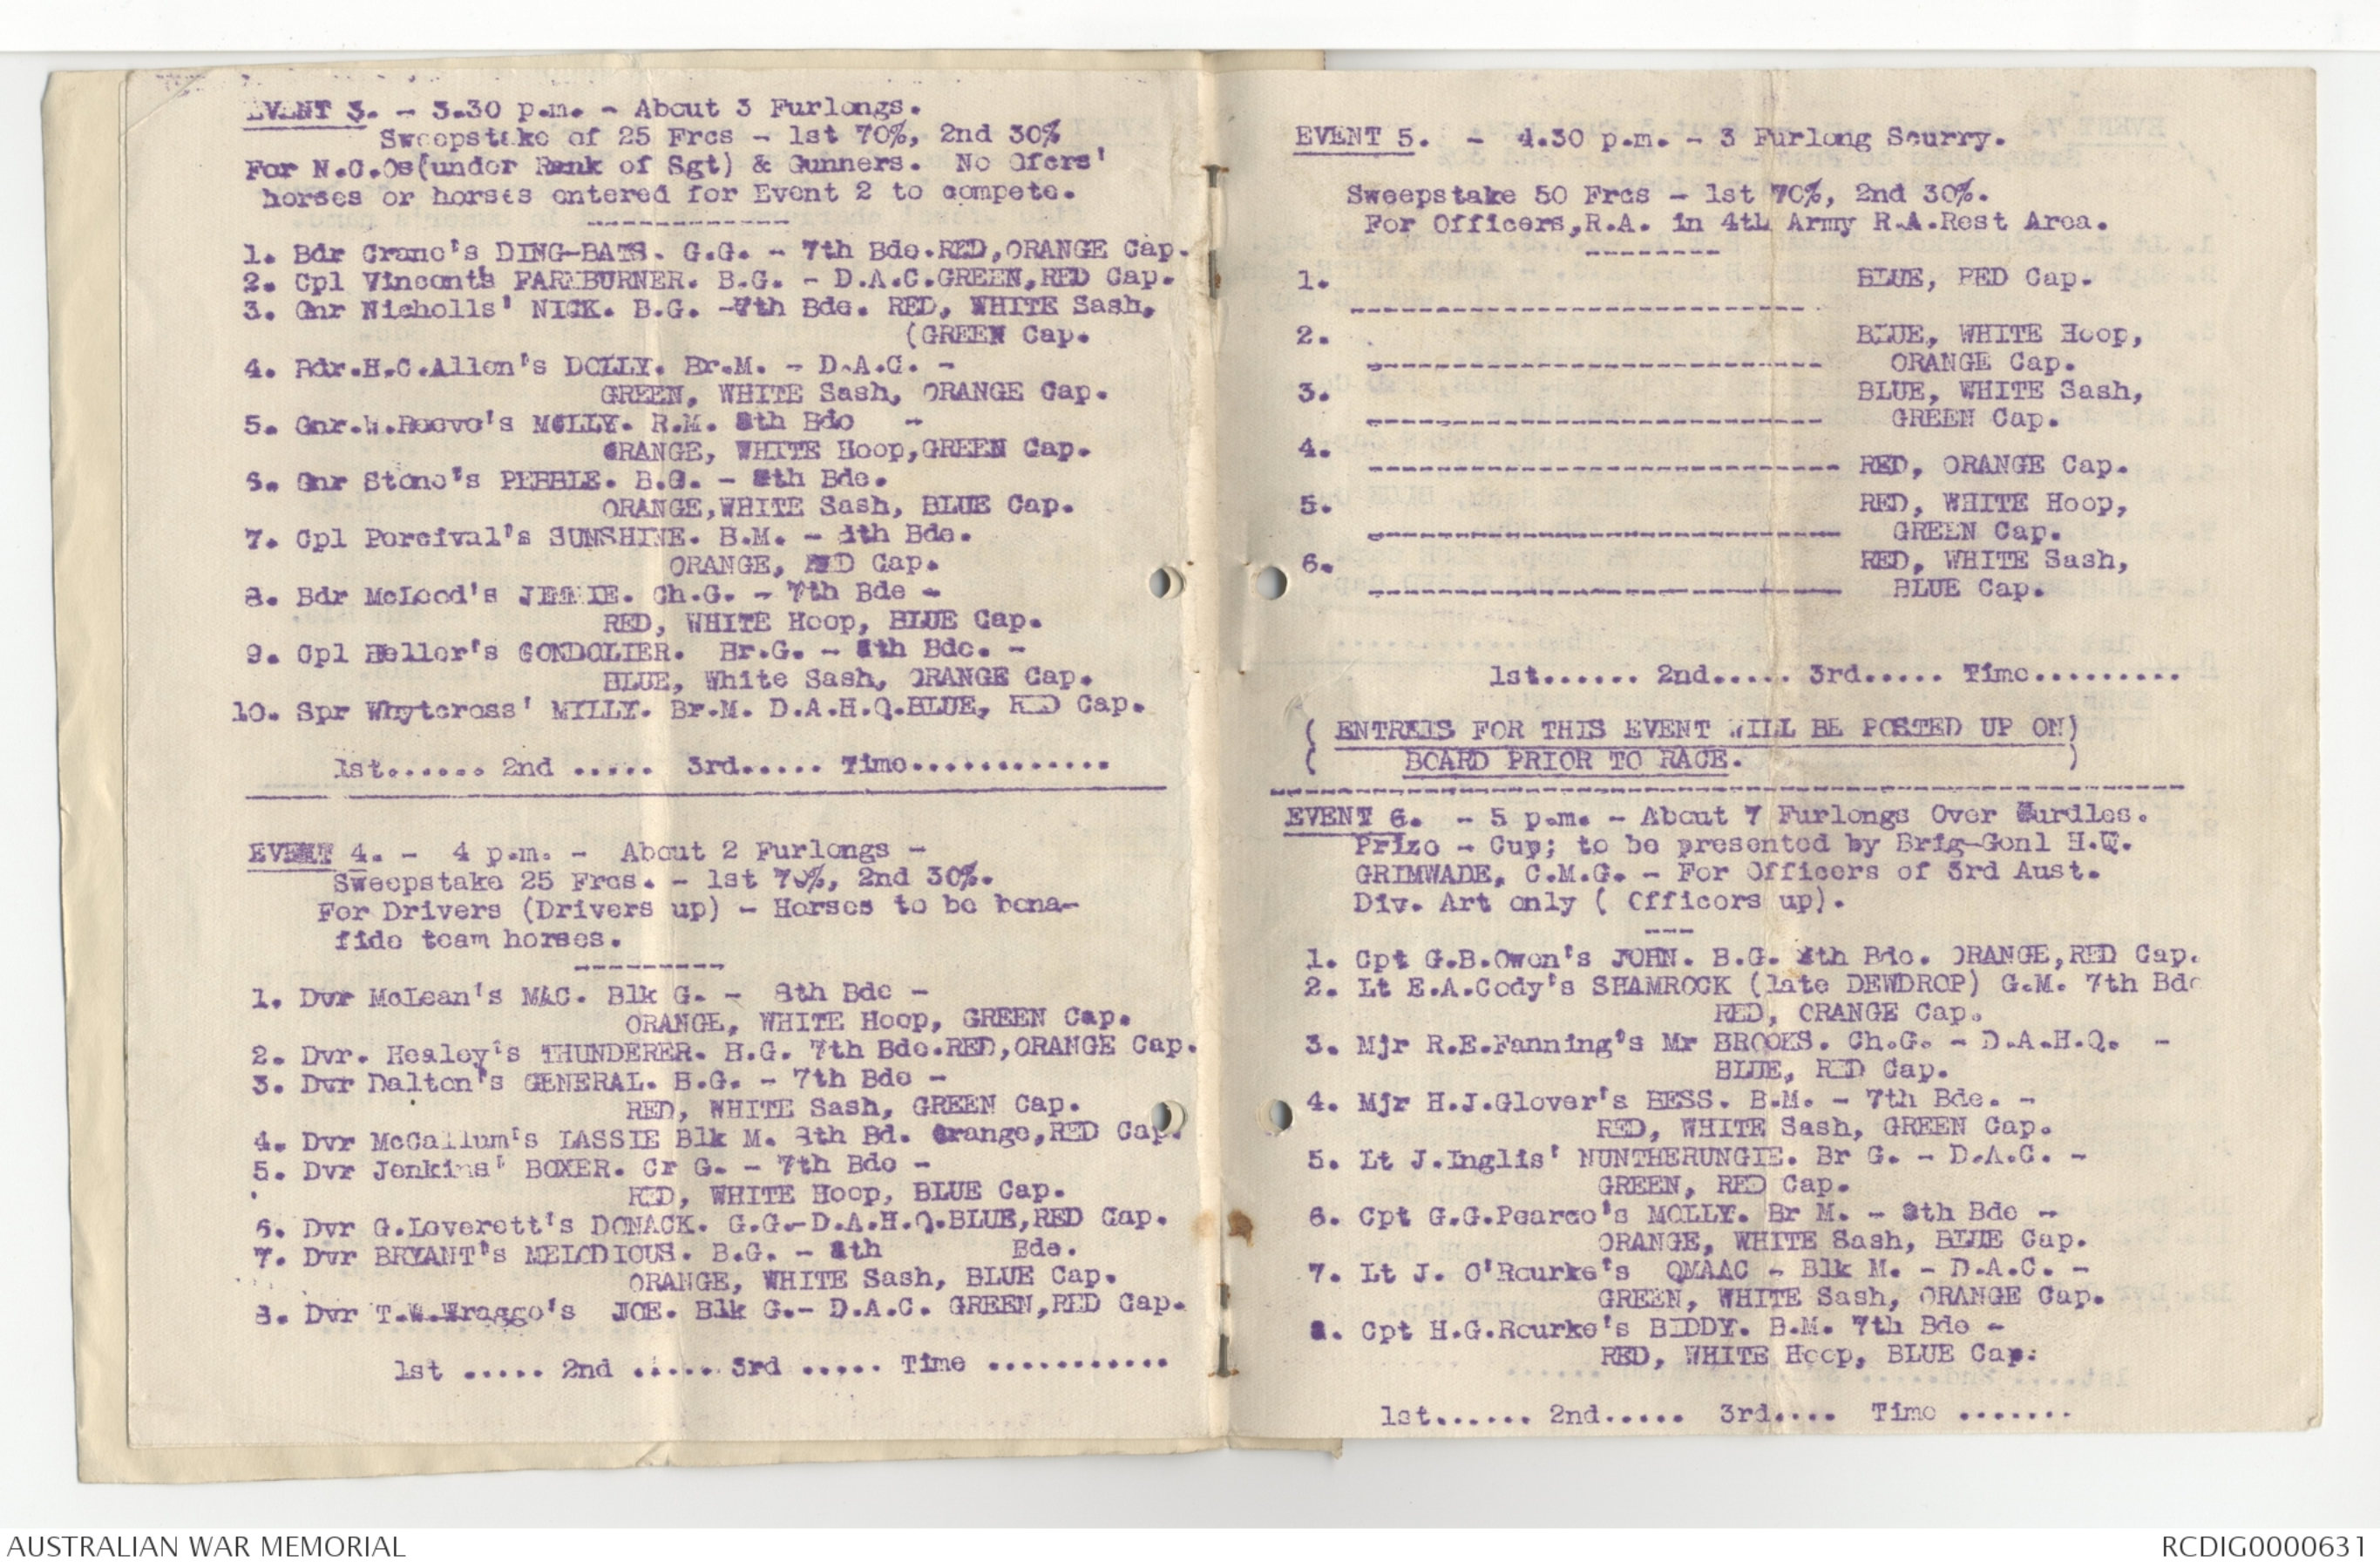 EVENT 3. - 3.30 p.m. - About 3 Furlongs.
Sweepstake of 25 Frcs - 1st 70%, 2nd 30%
For N.C.Os(under Rank of Sgt) & Gunners. No Ofcrs'
horses or horses entered for Event 2 to compete.
----------
1. Bdr Crane's DING-BATS. G.G. - 7th Bde.RED,ORANGE Cap.
2. Cpl Vincent's FARMBURNER. B.G. - D.A.C.GREEN,RED Cap.
3. Gnr Nicholls' NICK. B.G. -7th Bde. RED, WHITE Sash,
(GREEN Cap.
4. Bdr.H.C.Allen's DOLLY. Br.M. - D.A.C. -
GREEN, WHITE Sash, ORANGE Cap.
5. Gnr.W.Reeve's MOLLY. R.M. 8th Bde -
ORANGE, WHITE Hoop,GREEN Cap.
6. Gnr Stone's PEBBLE. B.G. - 8th Bde.
ORANGE,WHITE Sash, BLUE Cap.
7. Cpl Percival's SUNSHINE. B.M. - 8th Bde.
ORANGE, RED Cap.
8. Bdr McLeod's JEMMIE. Ch.G. - 7th Bde -
RED, WHITE Hoop, BLUE Cap.
9. Cpl Heller's GONDOLIER. Br.G. - 8th Bde. -
BLUE, White Sash, ORANGE Cap.
10. Spr Whytcross' MILLY. Br.M. D.A.H.Q.BLUE, RED Cap.
1st...... 2nd ..... 3rd..... Time............
EVENT 4. - 4 p.m. - About 2 Furlongs -
Sweepstake 25 Frcs. - 1st 70%, 2nd 30%.
For Drivers (Drivers up) - Horses to be bona-
fide team horses.
---------
1. Dvr McLean's MAC. Blk G. - 8th Bde -
ORANGE, WHITE Hoop, GREEN Cap.
2. Dvr. Healey's THUNDERER. B.G. 7th Bde.RED,ORANGE Cap.
3. Dvr Dalton's GENERAL. B.G. - 7th Bde -
RED, WHITE Sash, GREEN Cap.
4. Dvr McCallum's LASSIE Blk M. 8th Bd. Orange,RED Cap.
5. Dvr Jenkins' BOXER. Cr G. - 7th Bde -
RED, WHITE Hoop, BLUE Cap.
6. Dvr G.Loverett's DONACK. G.G.-D.A.H.Q.BLUE,RED Cap.
7. Dvr BRYANT's MELODIOUS. B.G. - 8th Bde.
ORANGE, WHITE Sash, BLUE Cap.
8. Dvr T.W.Wragge's JOE. Blk G.- D.A.C. GREEN,RED Cap.
1st ..... 2nd ...... 3rd ..... Time ...........
EVENT 5. - 4.30 p.m. - 3 Furlong Scurry.
Sweepstake 50 Frcs - 1st 70%, 2nd 30%.
For Officers,R.A. in 4th Army R.A.Rest Area.
--------
1. BLUE, RED Cap.
2. BLUE, WHITE Hoop,
ORANGE Cap.
3. BLUE, WHITE Sash,
GREEN Cap.
4. RED, ORANGE Cap.
5. RED, WHITE Hoop,
GREEN Cap.
6. RED, WHITE Sash,
BLUE Cap.
1st...... 2nd..... 3rd..... Time.........
( ENTREIS FOR THIS EVENT WILL BE POSTED UP ON)
( BOARD PRIOR TO RACE. )
EVENT 6. - 5 p.m. - About 7 Furlongs Over Hurdles.
Prize - Cup; to be presented by Brig-Genl H.W.
GRIMWADE, C.M.G. - For Officers of 3rd Aust.
Div. Art only ( Officers up).
---
1. Cpt G.B.Owen's JOHN. B.G. 8th Bde. ORANGE,RED Cap.
2. Lt E.A.Cody's SHAMROCK (late DEWDROP) G.M. 7th Bde
RED, ORANGE Cap.
3. Mjr R.E.Fanning's Mr BROOKS. Ch.G. - D.A.H.Q. -
BLUE, RED Cap.
4. Mjr H.J.Glover's BESS. B.M. - 7th Bde. -
RED, WHITE Sash, GREEN Cap.
5. Lt J.Inglis' NUNTHERUNGIE. Br G. - D.A.C. -
GREEN, RED Cap.
6. Cpt G.G.Pearce's MOLLY. Br M. - 8th Bde -
ORANGE, WHITE Sash, BLUE Cap.
7. Lt J. O'Rourke's QMAAC - Blk M. - D.A.C. -
GREEN, WHITE Sash, ORANGE Cap.
8. Cpt H.G.Rourke's BIDDY. B.M. 7th Bde -
RED, WHITE Hoop, BLUE Cap.
1st...... 2nd..... 3rd.... Time .......
AUSTRALIAN WAR MEMORIAL
RCDIG0000631